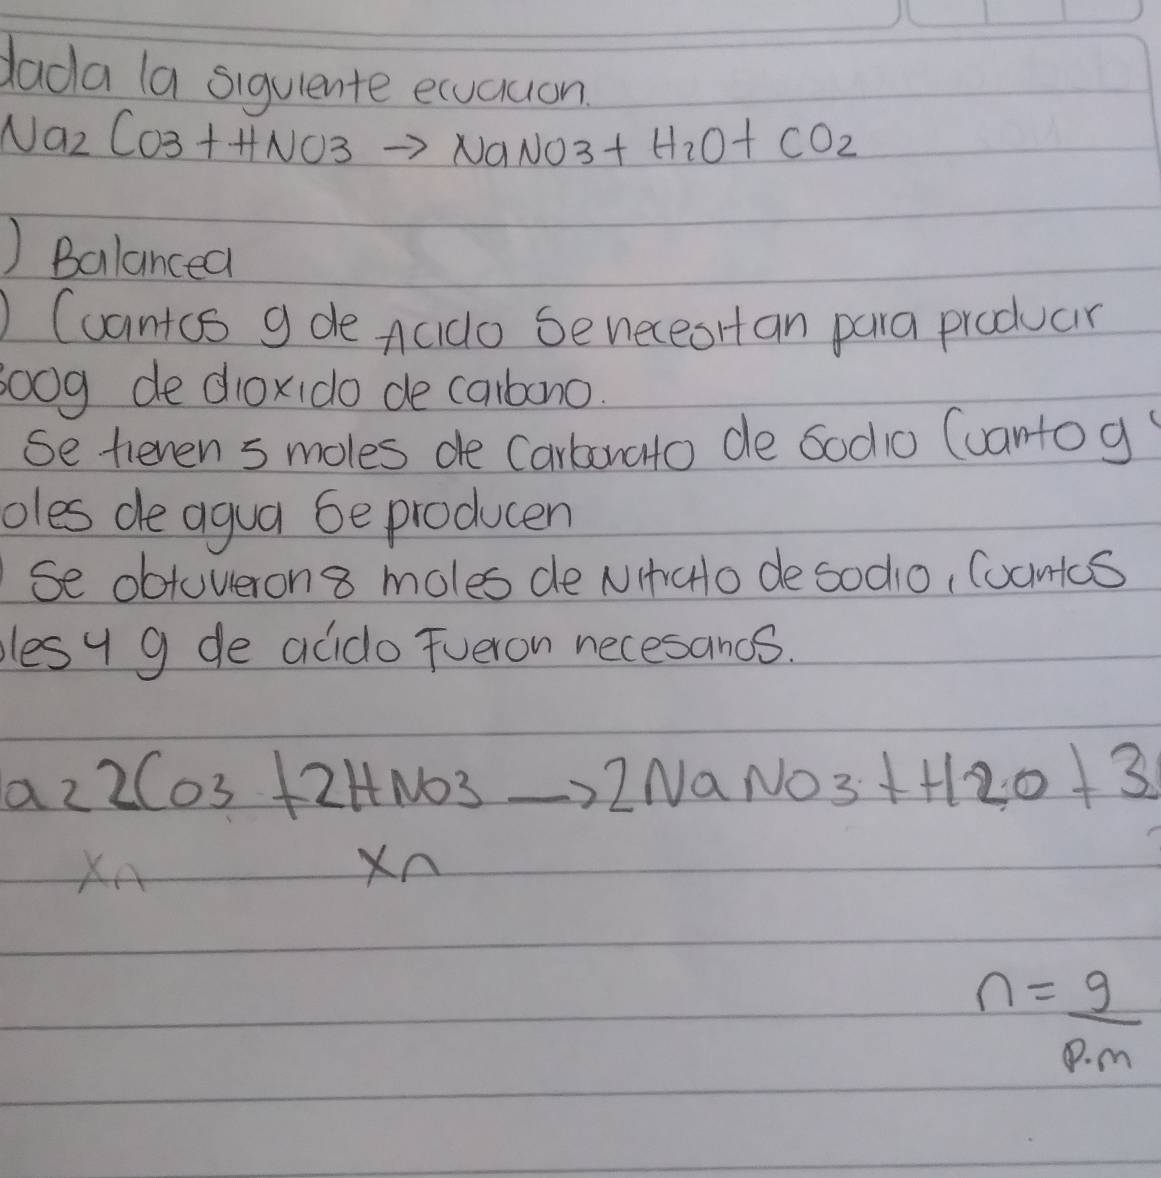 dada la siguiente ecuacion.
Na2 CO3 + HNO3 → NaNO3 + H2O + CO2
) Balancea
) Cuantos g de Acido se necesitan para producir
00g de dioxido de carbono.
Se tienen 5 moles de Carbonato de Sodio Cuanto g
oles de agua se producen
) Se obtuvieron 8 moles de Nitrato de sodio, Cuantos
les y g de acido Fueron necesarios.
a2 2CO3 + 2HNO3 → 2NaNO3 + H2O + 3
Xn Xn
n = g
p.m